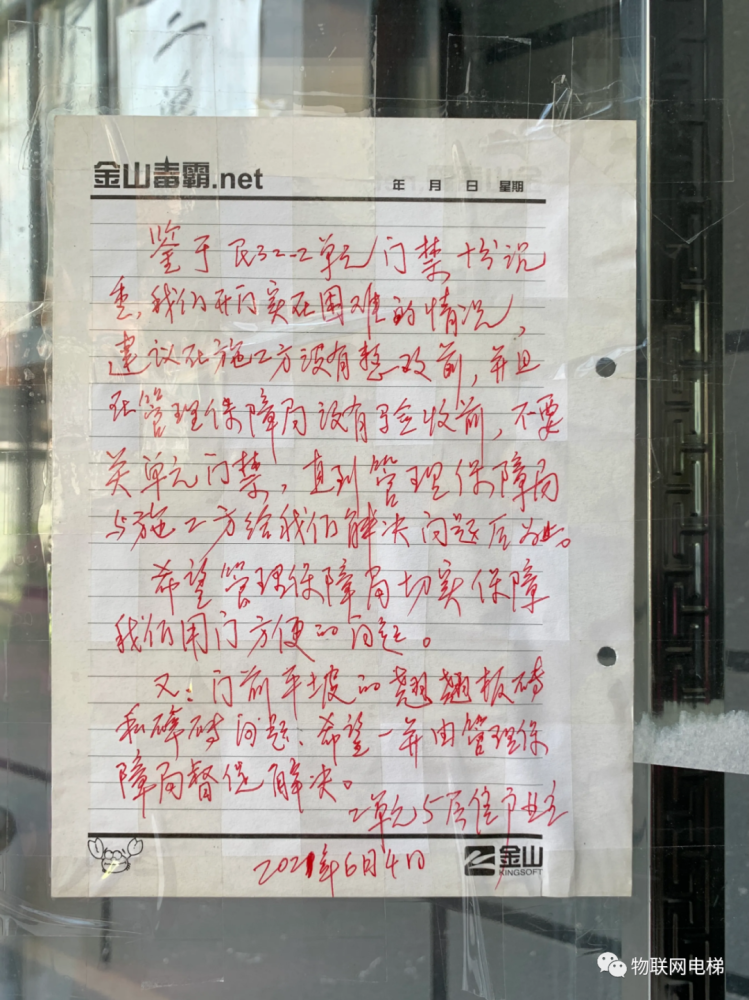 金山毒霸.net
年 月 日 星期
鉴于民312-2单元门禁十分沉
重,我们开门实在困难的情况,
建议在施工方没有整改前,并且
在管理保障局没有验收前,不要
关单元门禁,直到管理保障局
与施工方给我们解决问题后为止。
希望管理保障局切实保障
我们用门方便的问题。
又:门前平坡的翘翘板砖
和碎砖问题,希望一并由管理保
障局督促解决。
2单元5层住户业主
2021年6月4日
金山
KINGSOFT
物联网电梯